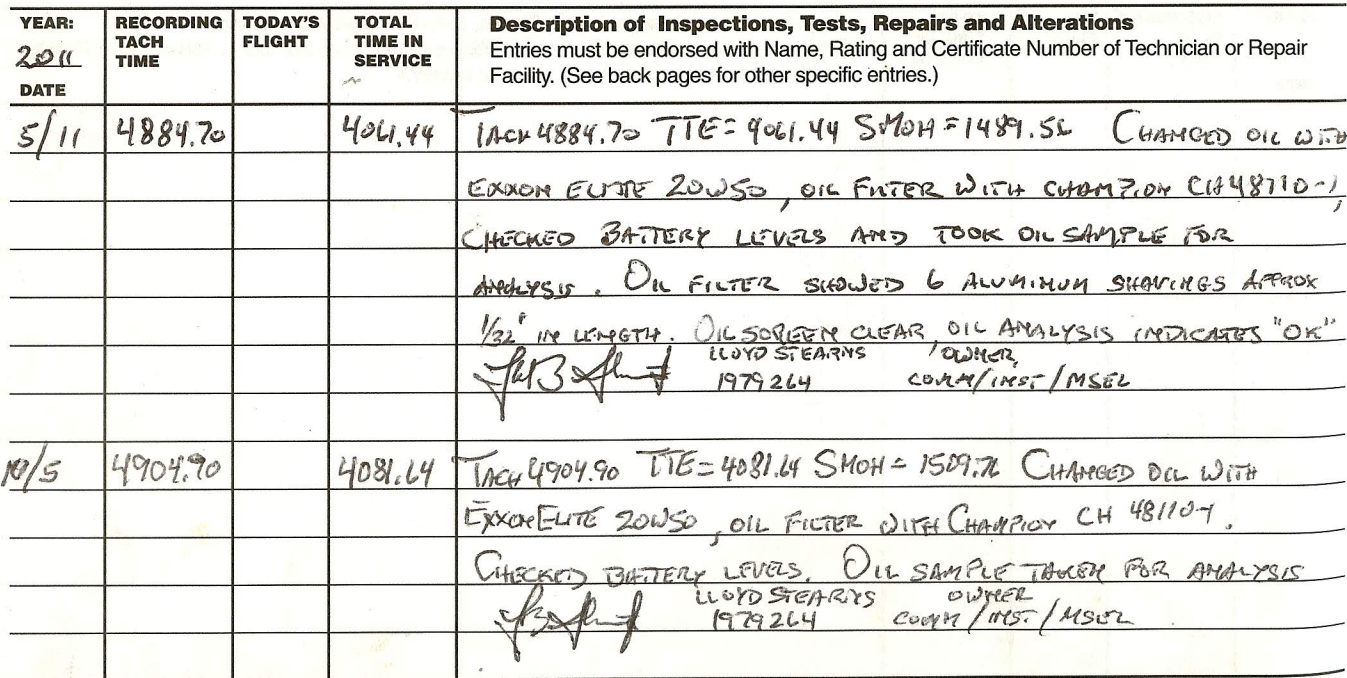 YEAR: 2011 DATE
RECORDING TACH TIME
TODAY'S FLIGHT
TOTAL TIME IN SERVICE
Description of Inspections, Tests, Repairs and Alterations
Entries must be endorsed with Name, Rating and Certificate Number of Technician or Repair
Facility. (See back pages for other specific entries.)
5/11 4884.70 4061.44 TACH 4884.70 TTE = 4061.44 SMOH = 1489.56 CHANGED OIL WITH
EXXON ELITE 20W50, OIL FILTER WITH CHAMPION CH48110-1,
CHECKED BATTERY LEVELS AND TOOK OIL SAMPLE FOR
ANALYSIS. OIL FILTER SHOWED 6 ALUMINUM SHAVINGS APPROX
1/32" IN LENGTH. OIL SCREEN CLEAR, OIL ANALYSIS INDICATES "OK"
LLOYD STEARNS OWNER,
1979264 COMM/INST/MSEL
10/5 4904.90 4081.64 TACH 4904.90 TTE = 4081.64 SMOH = 1509.76 CHANGED OIL WITH
EXXON ELITE 20W50, OIL FILTER WITH CHAMPION CH 48110-1.
CHECKED BATTERY LEVELS. OIL SAMPLE TAKEN FOR ANALYSIS
LLOYD STEARNS OWNER
1979264 COMM/INST/MSEL